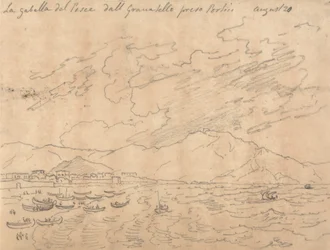 La gabella del Pesce dall Granatello presso Portici August 20